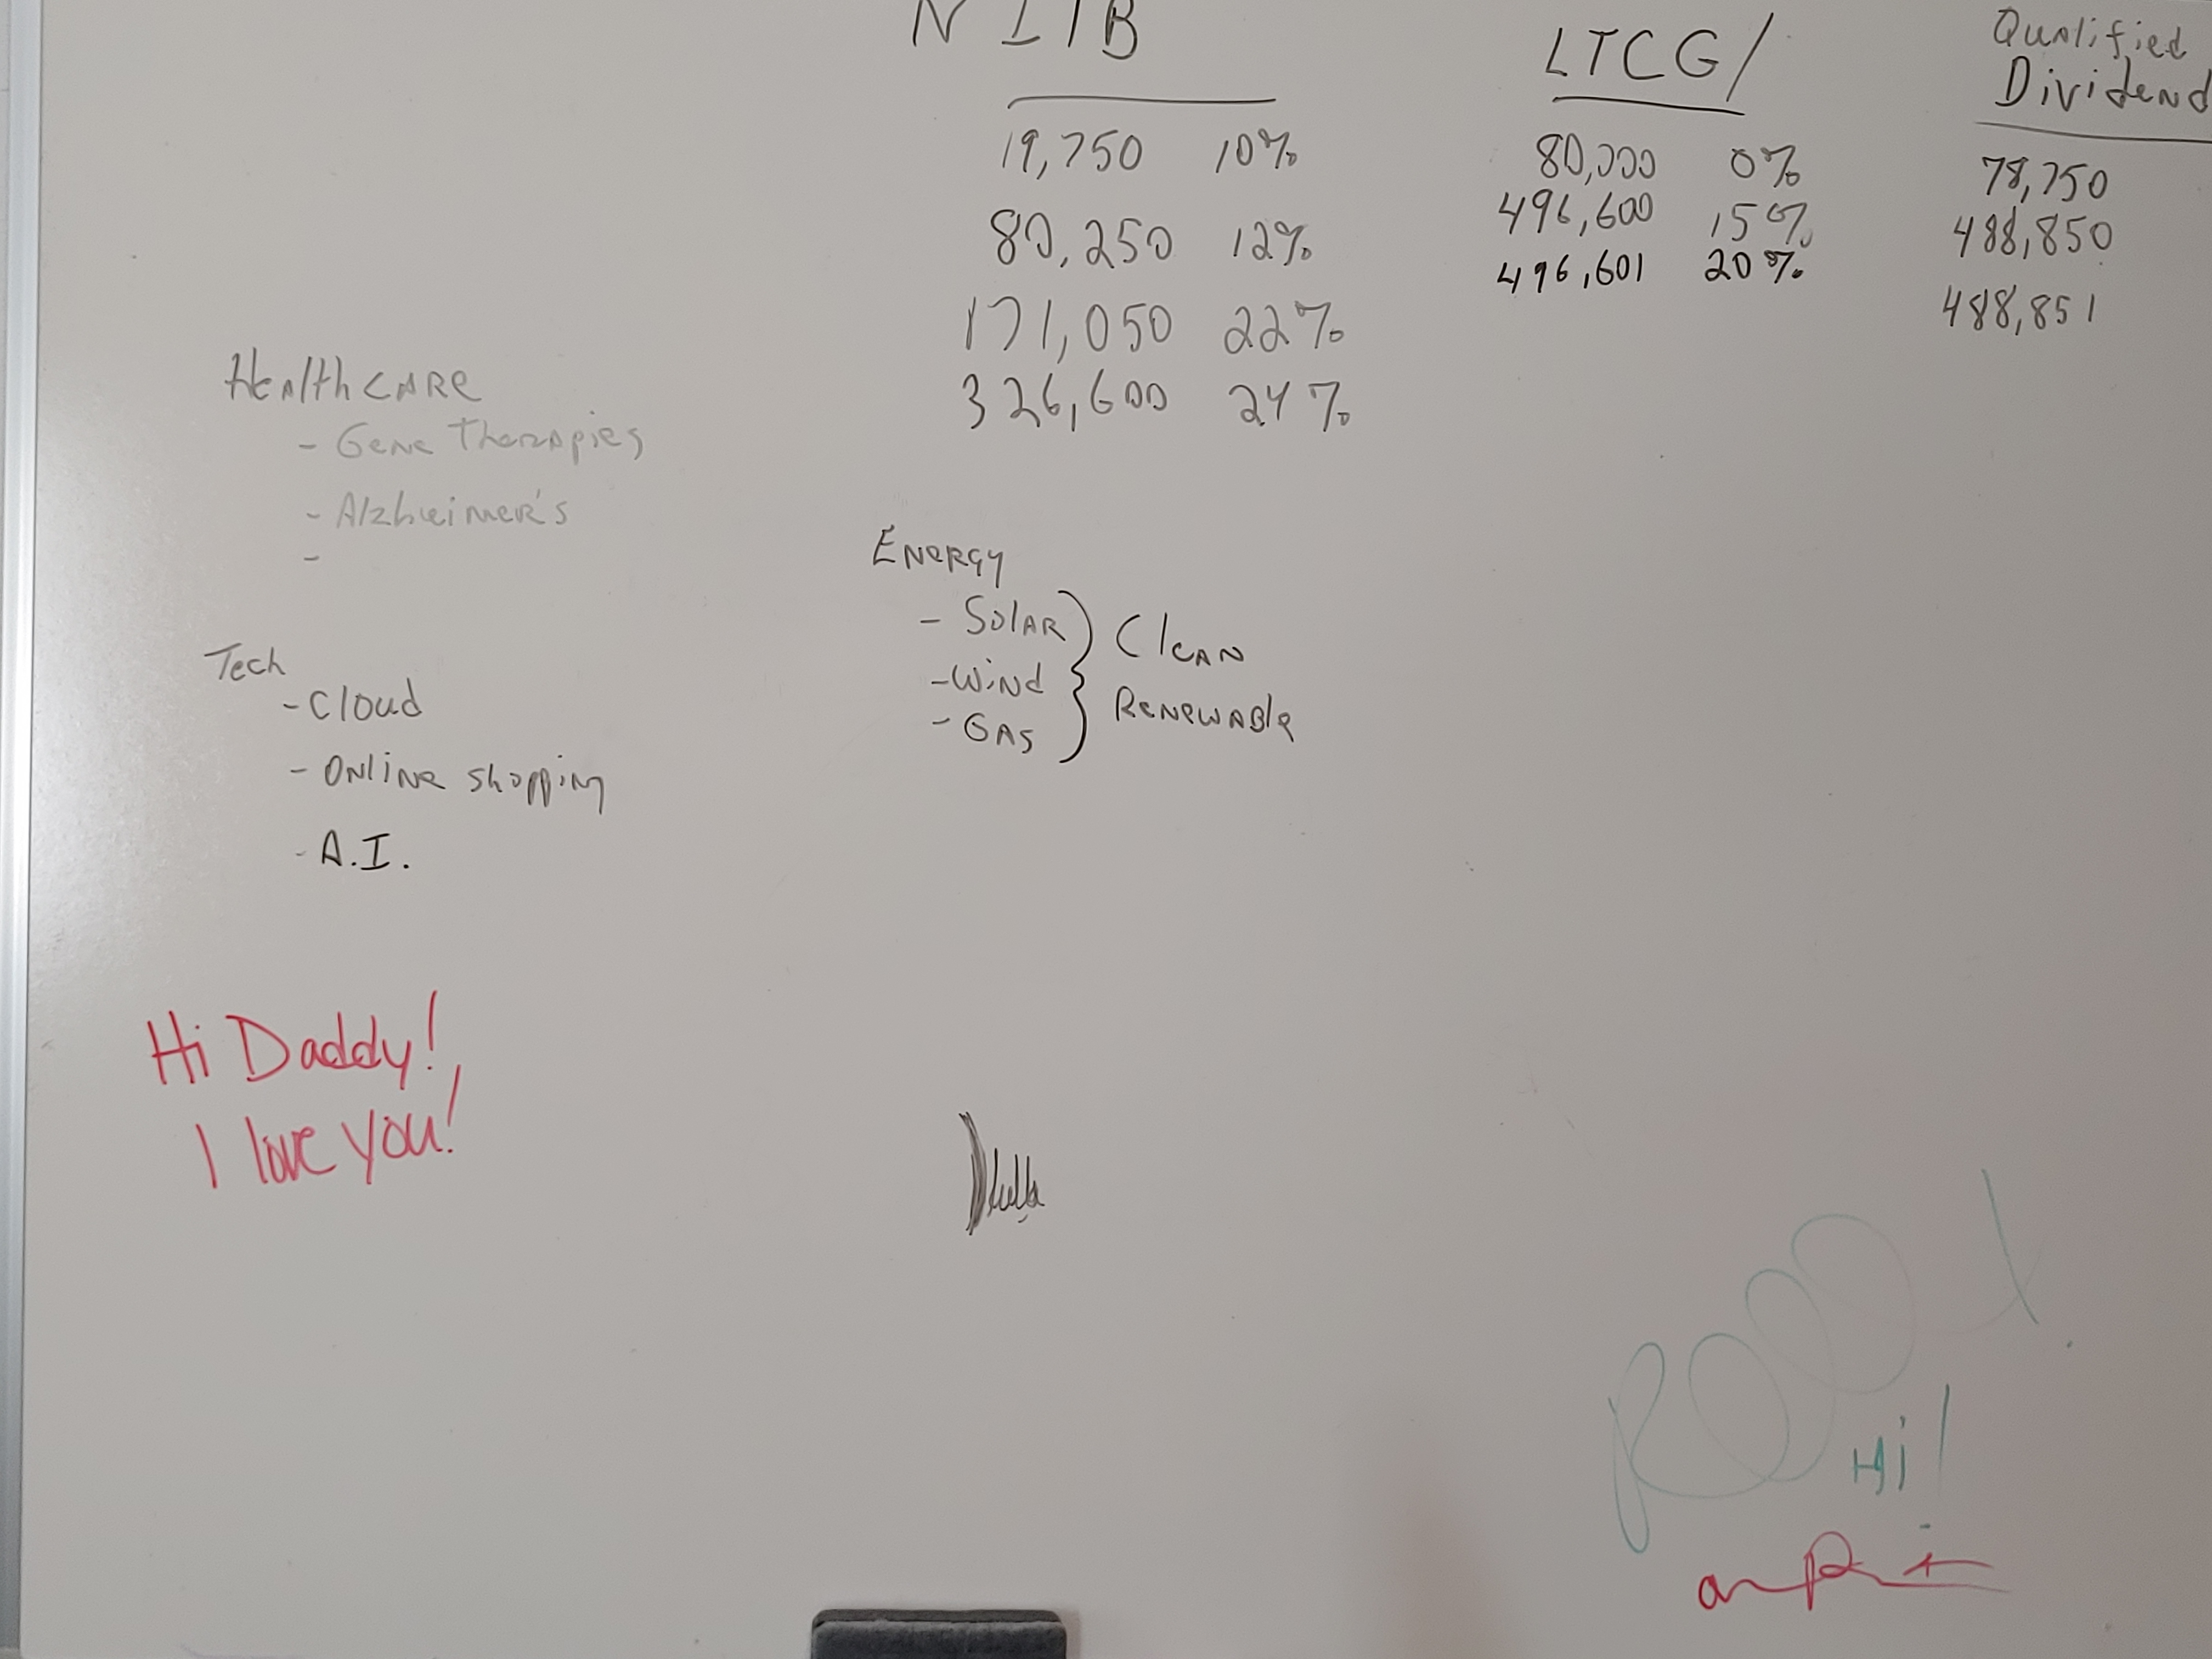 LTCG/
Qualified
Dividend
19,750 10%
80,250 12%
171,050 22%
326,600 24%
80,000 0%
496,600 15%
496,601 20%
78,750
488,850
488,851
HealthCARe
- Gene Therapies
- Alzheimer's
-
Tech
- Cloud
- Online shopping
- A.I.
Energy
- Solar
- Wind
- Gas
Clean
Renewable
Hi Daddy!
I love you!
Hi!